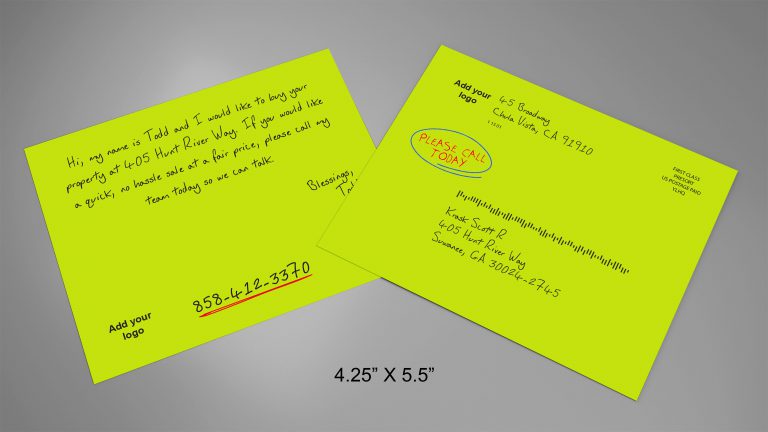 Hi, my name is Todd and I would like to buy your
property at 405 Hunt River Way. If you would like
a quick, no hassle sale at a fair price, please call my
team today so we can talk.
Blessings,
858-412-3370
Add your
logo
Add your
logo
45 Broadway
Chula Vista, CA 91910
PLEASE CALL
TODAY
FIRST CLASS
PRESORT
US POSTAGE PAID
YLHQ
Krask Scott R
405 Hunt River Way
Suwanee, GA 30024-2745
4.25” X 5.5”